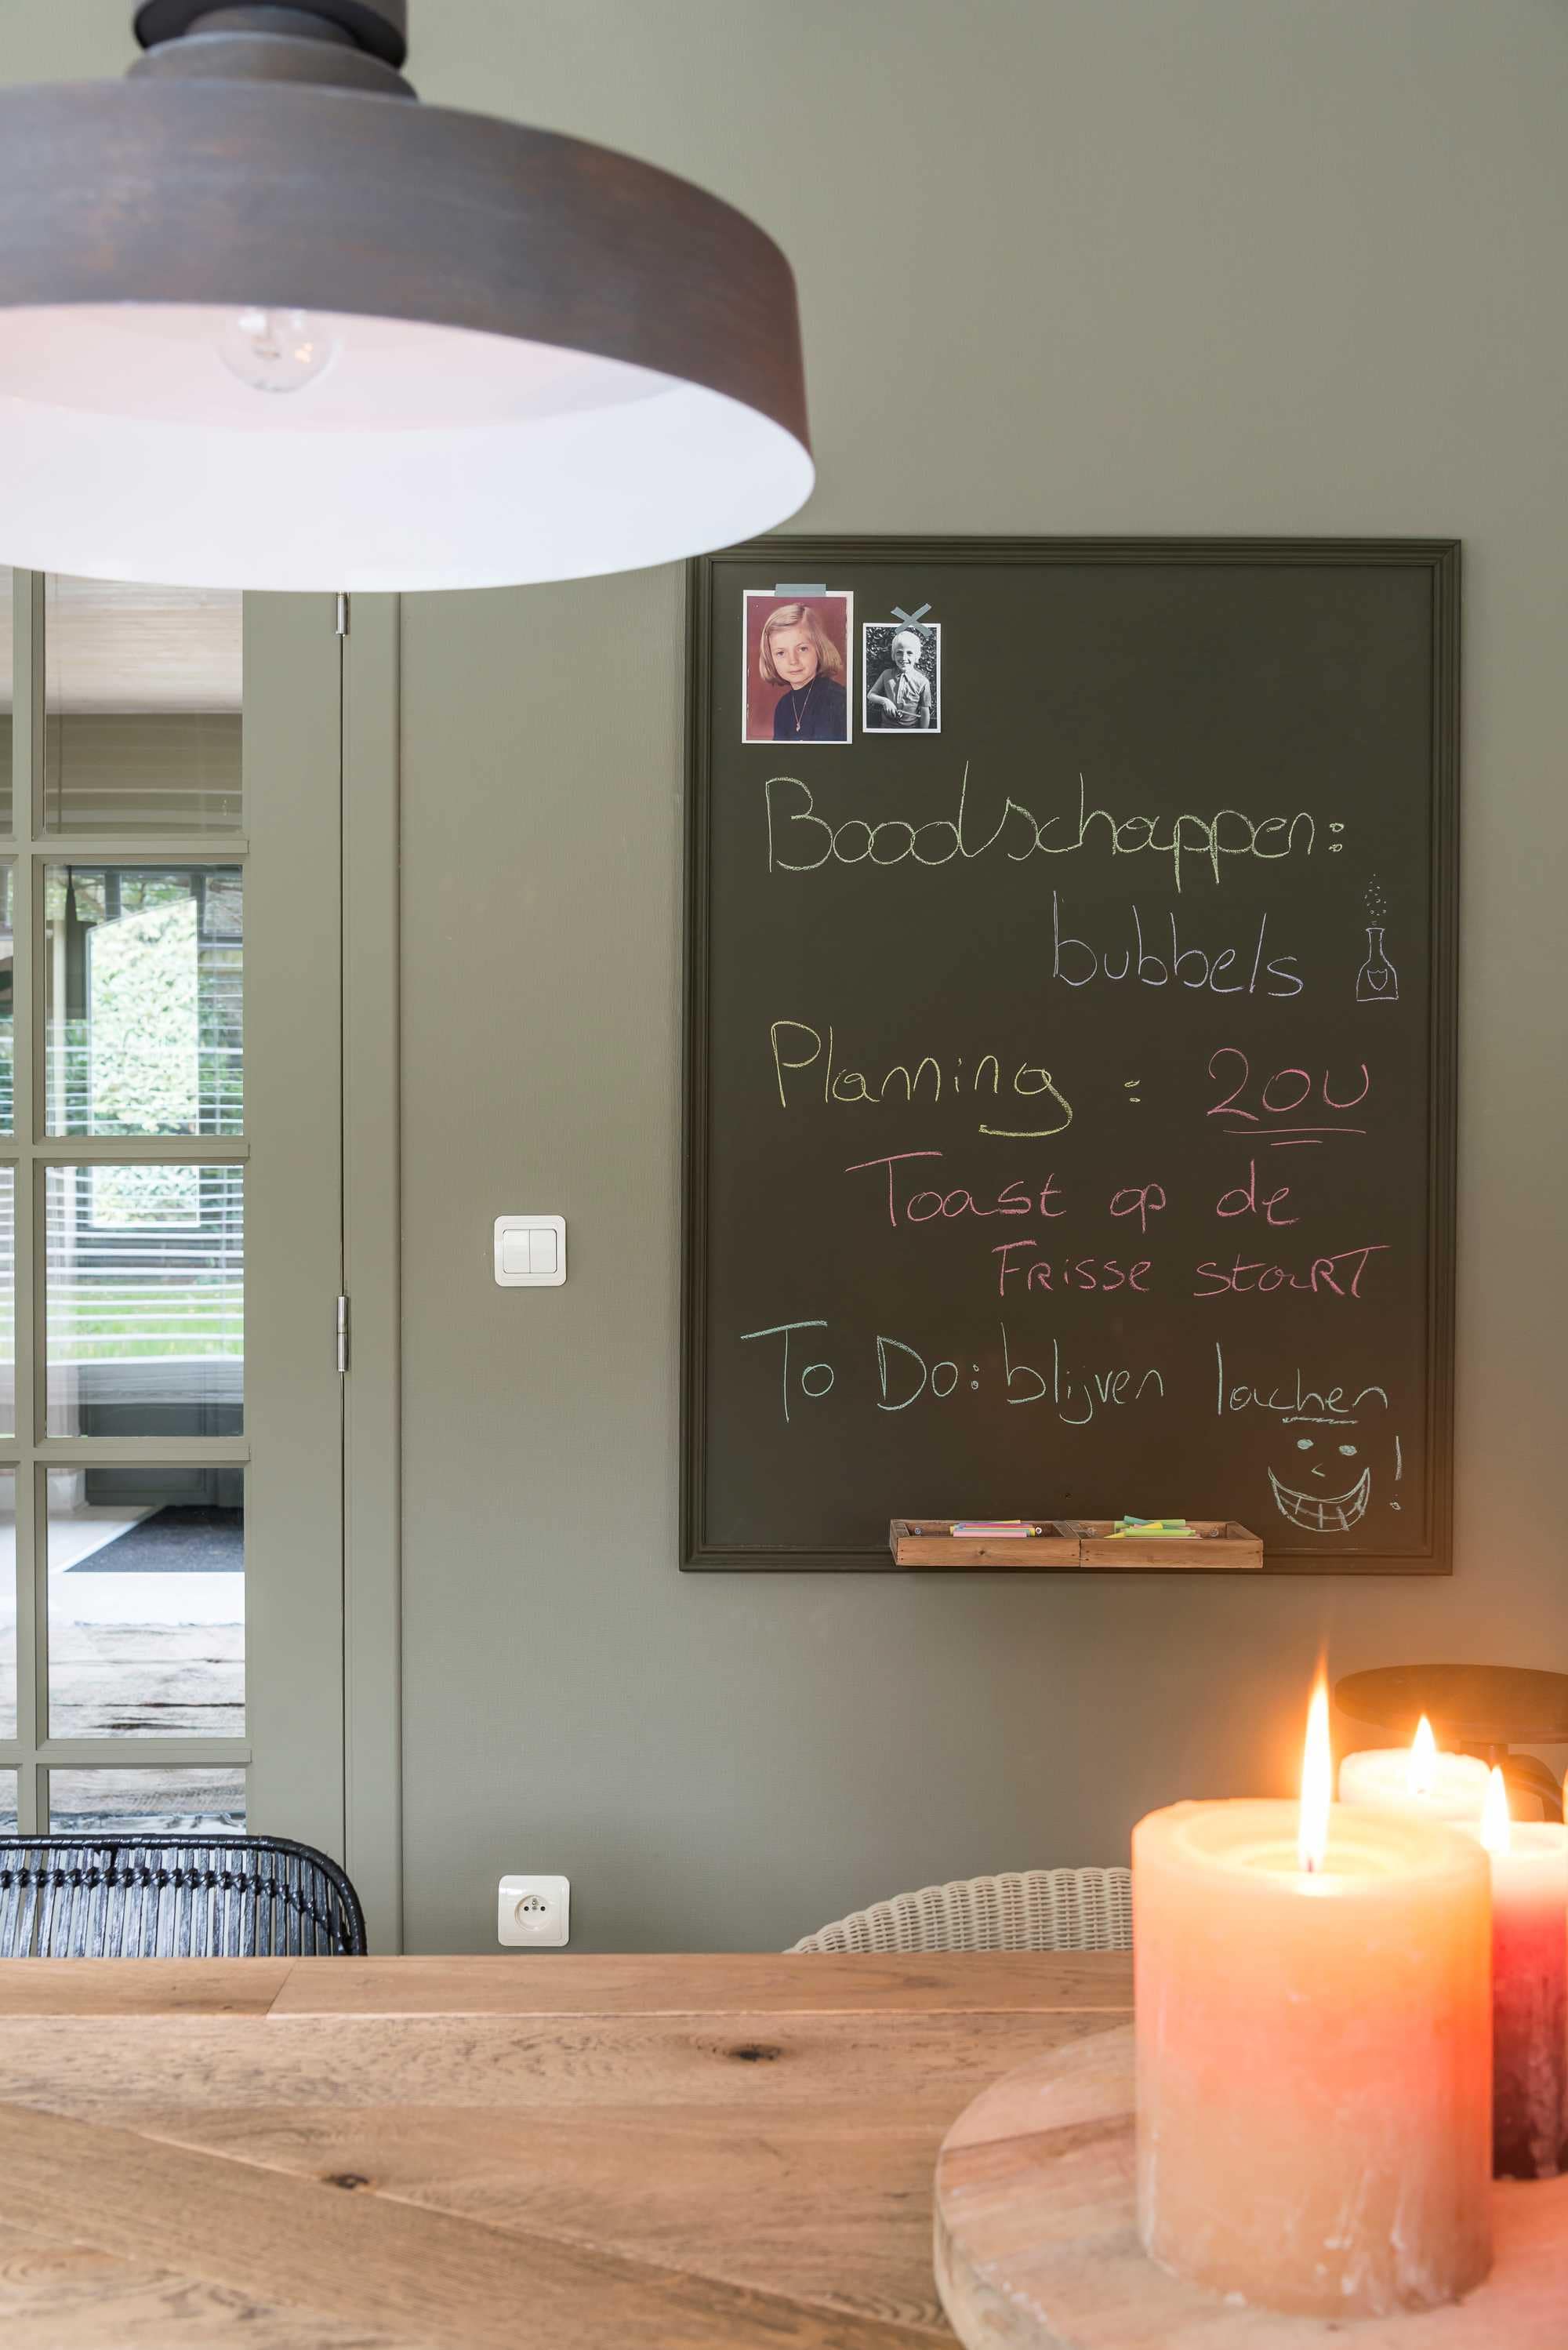 Boodschappen:
bubbels
Planning : 20U
Toast op de
FRISSE STaRT
To Do: blijven lachen
!